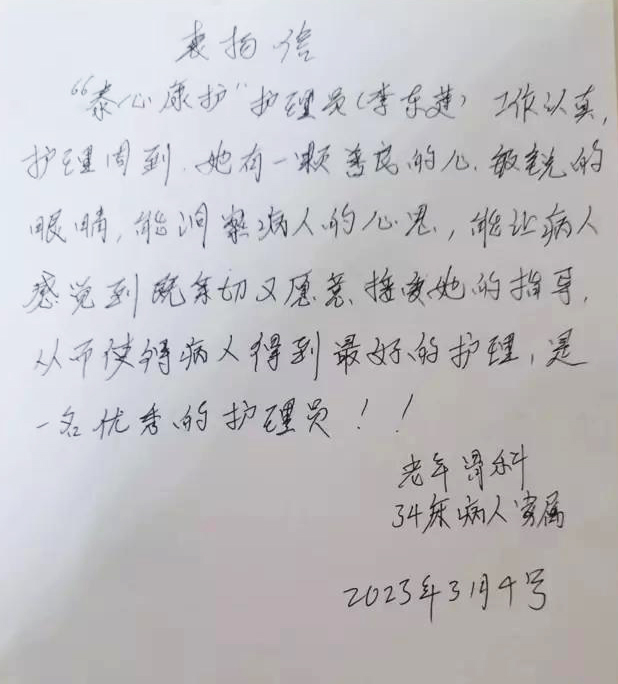 表扬信
“泰心康护”护理员（李东莲）工作认真,
护理周到.她有一颗善良的心.敏锐的
眼睛,能洞察病人的心思,能让病人
感觉到既亲切又愿意接受她的指导,
从而使得病人得到最好的护理,是
一名优秀的护理员！！
老年骨科
34床病人家属
2023年3月4号